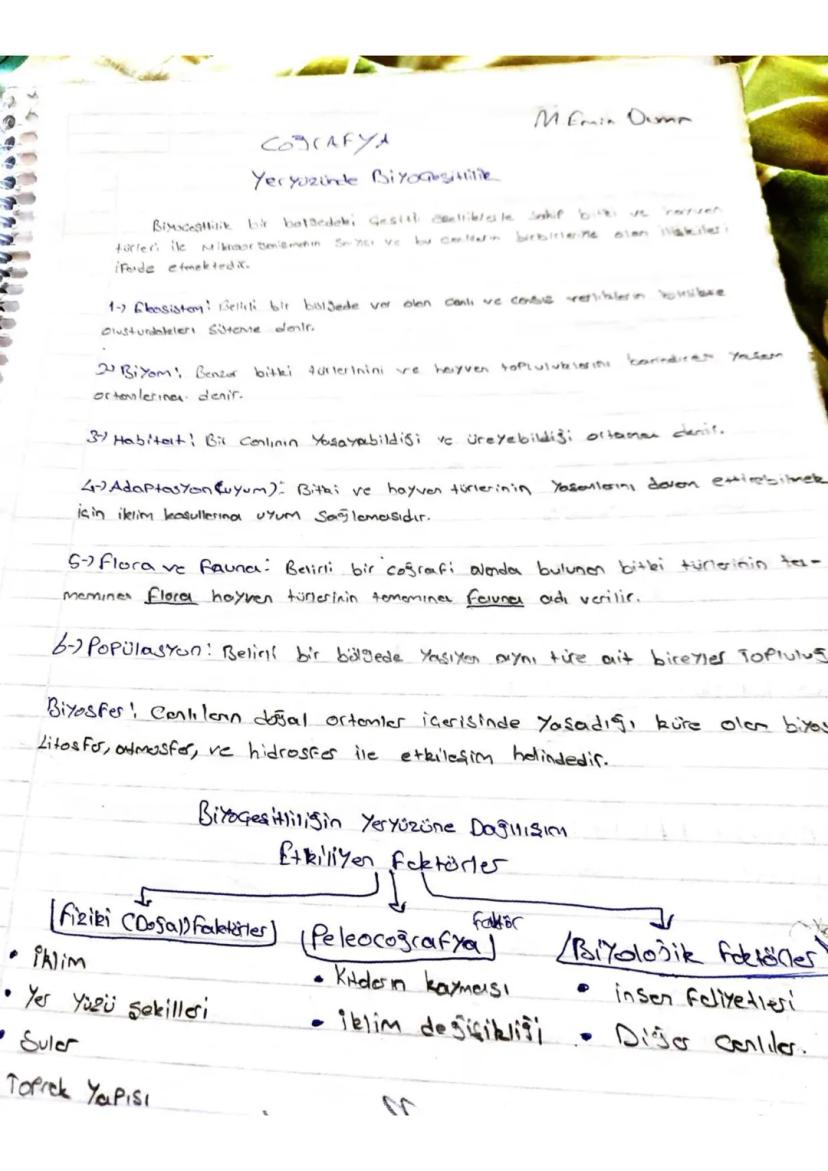 M Emin
COĞRAFYA
Yeryüzünde Biyoçeşitlilik
Biyoçeşitlilik bir bölgedeki çeşitli özelliklerle sahip bitki ve hayvan
türleri ile mikroorganizmanın sayısı ve bu canlıların birbirlerine olan ilişkileri
ifade etmektedir.
1-) Ekosistem: Belirli bir bölgede var olan canlı ve cansız varlıkların
oluşturdukları sisteme denir.
2-) Biyom: Benzer bitki türlerinini ve hayvan topluluklarını barındıran yaşam
ortamlarına denir.
3-) Habitat: Bir canlının yaşayabildiği ve üreyebildiği ortama denir.
4-) Adaptasyon (uyum): Bitki ve hayvan türlerinin yaşamlarını devam ettirebilmek
için iklim koşullarına uyum sağlamasıdır.
5-) Flora ve Fauna: Belirli bir coğrafi alanda bulunan bitki türlerinin ta-
mamına flora hayvan türlerinin tamamına fauna adı verilir.
6-) Popülasyon: Belirli bir bölgede yaşıyan aynı türe ait bireyler Topluluğ
Biyosfer: Canlıların doğal ortamlar içerisinde yaşadığı küre olan biyos
Litosfer, atmosfer, ve hidrosfer ile etkileşim halindedir.
Biyoçeşitliliğin Yeryüzüne Dağılışım
Etkiliyen faktörler
Fiziki (Doğal) Faktörler
Paleocoğrafya faktör
Biyolojik faktörler
• iklim
• Yer yüzü şekilleri
• Sular
Toprak Yapısı
• Kıtların kayması
• iklim değişikliği
• insan faliyetleri
• Diğer canlılar.